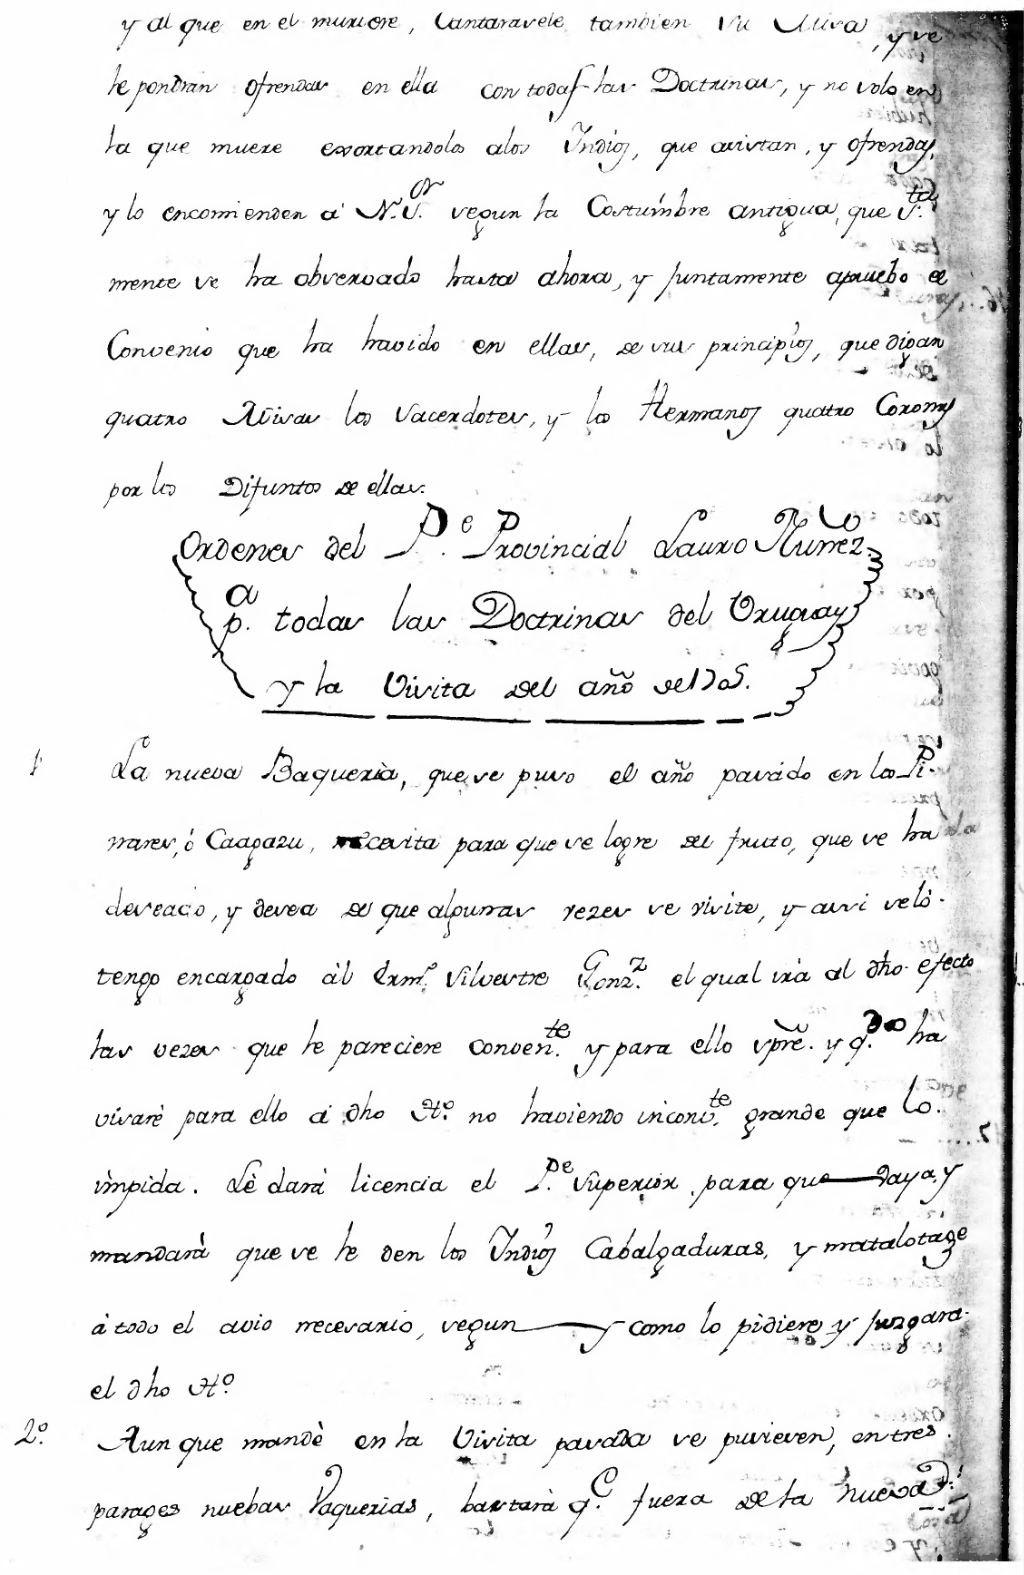 y al que en el muriere, Cantarasele tambien su Missa, y se
le pondran ofrendas en ella con todas las Doctrinas, y no solo en
la que muere exortandolos alos Indios, que assistan, y ofrendas,
y lo encomienden a N. S.or segun la Costumbre antigua, que S.ta
mente se ha observado hasta ahora, y juntamente apruebo el
Convenio que ha havido en ellas, de sus principios, que digan
quatro Missas los Sacerdotes, y los Hermanos quatro Coronas
por los Difuntos de ellas.
Ordenes del P.e Provincial Lauro Nuñez
p.a todas las Doctrinas del Uruguay
y la Visita del año de 1705.
1 La nueva Baqueria, que se puso el año pasado en los Pi-
nares, ó Caaguazu, necesita para que se logre su fruto, que se ha
deseado, y desea de que algunas vezes se visite, y assi se lo
tengo encargado al Erm.o Silvestre Gonz.z el qual irà al dho efecto
las vezes que le pareciere conven.te y para ello spre. y q.do ha
visarè para ello a dho H.o no haviendo inconv.te grande que lo
impida. Lè darà licencia el P.e Superior para que vaya, y
mandarà que se le den los Indios Cabalgaduras, y matalotage
à todo el avio necesario, segun y como lo pidiere y juzgara
el dho H.o
2.o Aun que mandè en la Visita pasada se pusiesen, en tres
parages nuebas Vaquerias, bastarà q.e fuera de la nueva